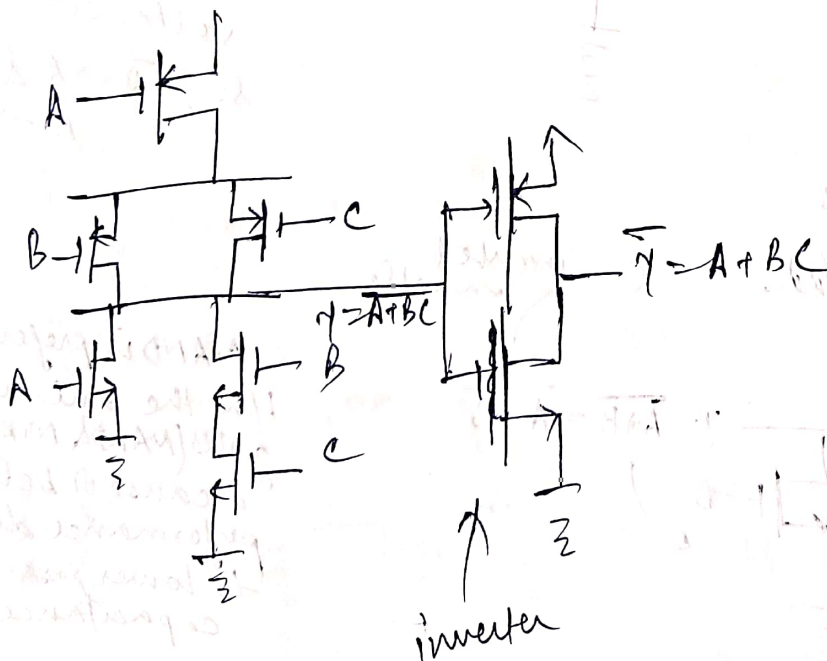 A
B
C
Y = \overline{A+BC}
\overline{Y} = A + BC
A
B
C
inverter